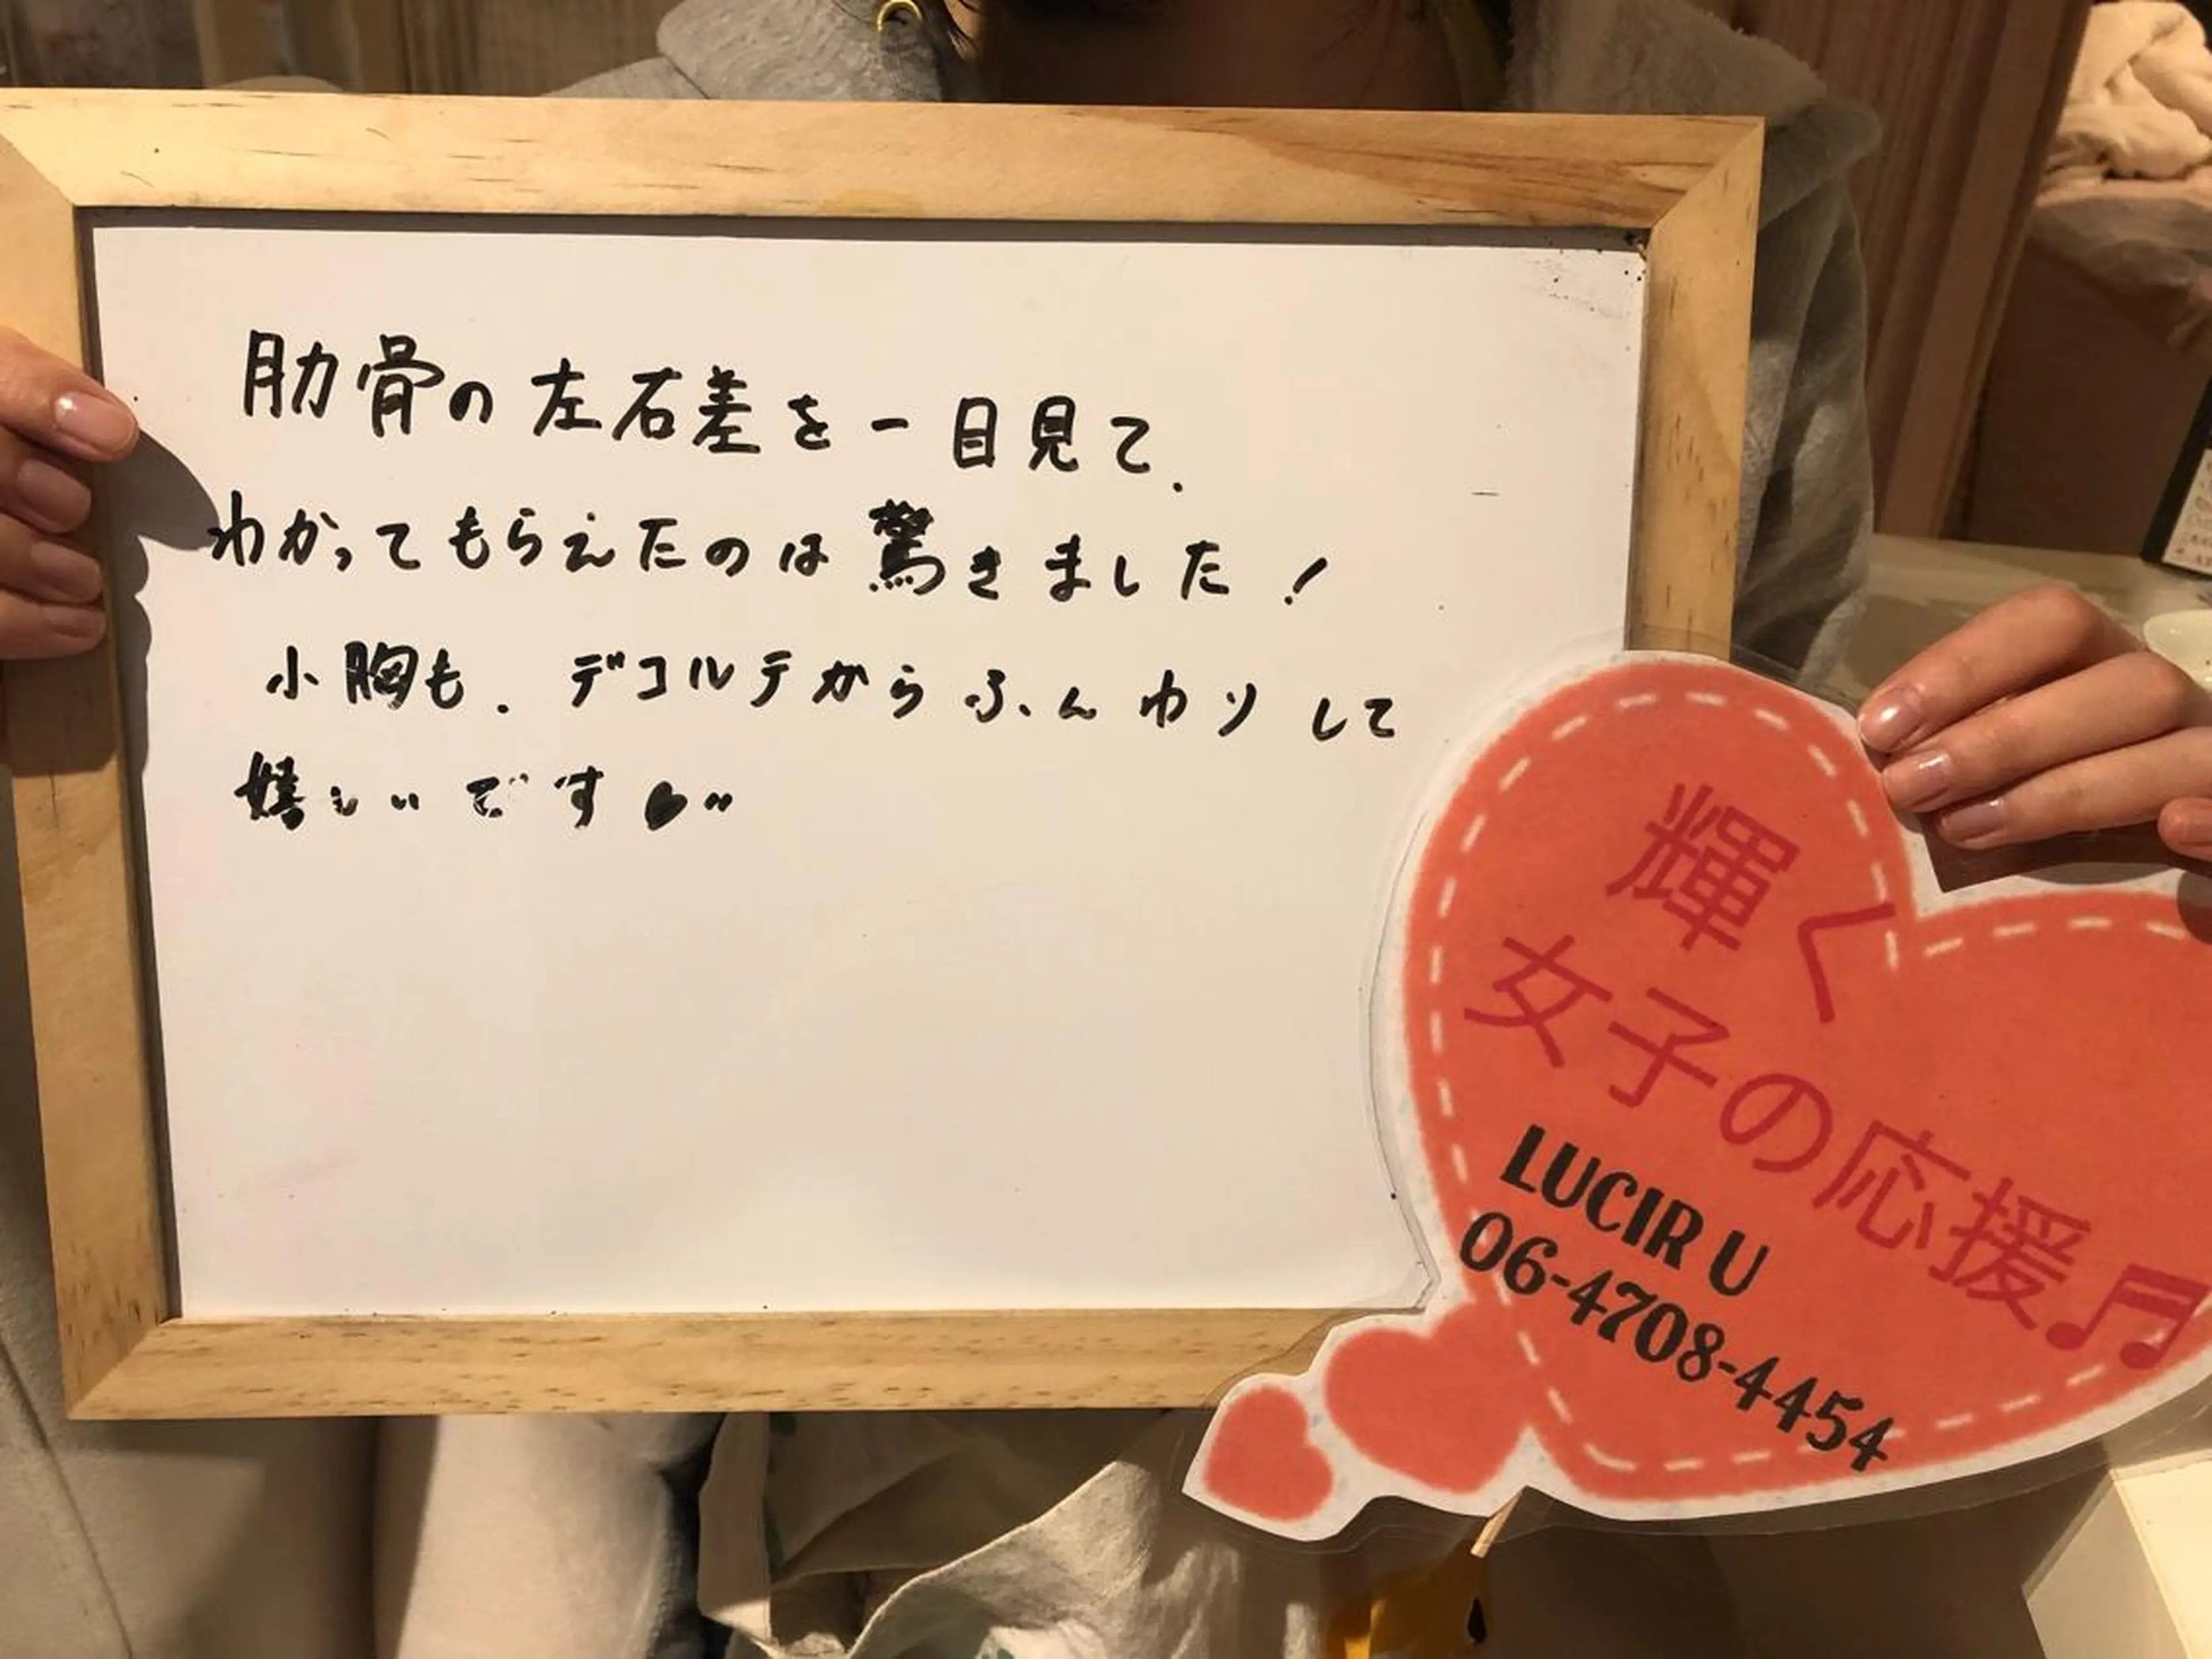 肋骨の左右差を一目見て.
わかってもらえたのは驚きました!
小胸も. デコルテからふんわりして
嬉しいです♥〃
輝く
女子の応援♬
LUCIR U
06-4708-4454